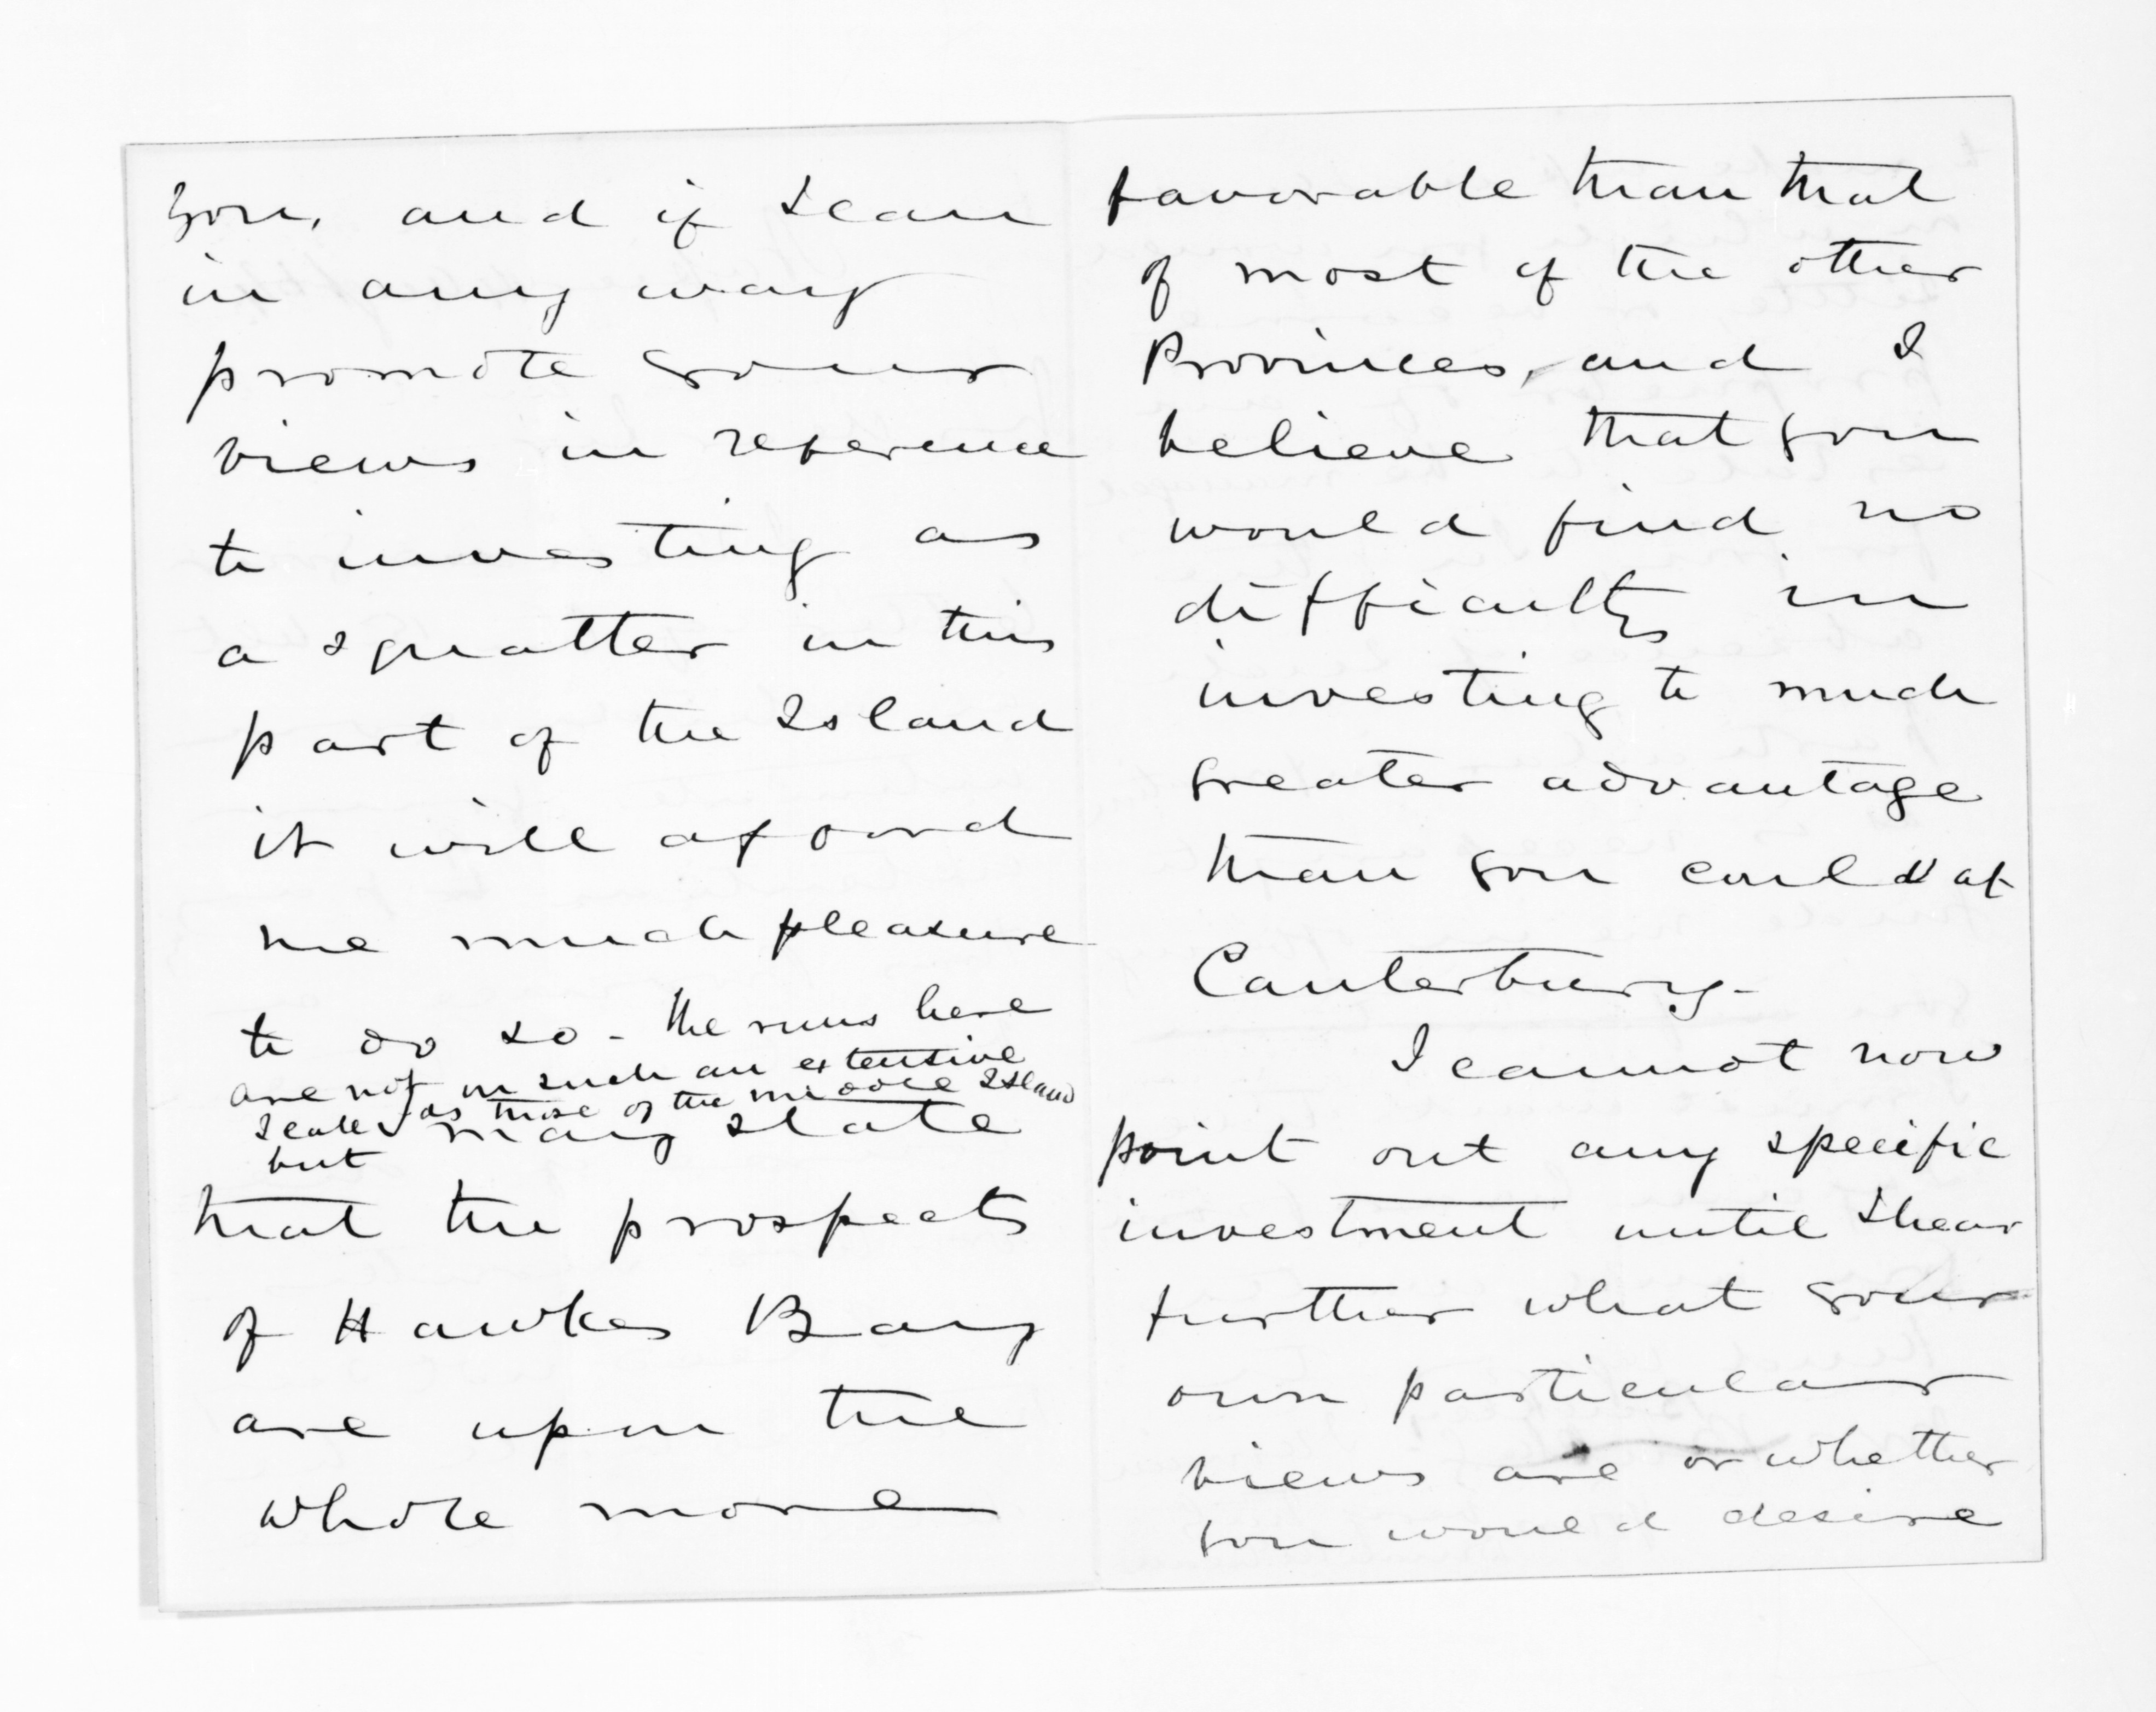 you, and if I can
in any way
promote your
views in reference
to investing as
a squatter in this
part of the Island
it will afford
me much pleasure
to do so - The runs here
are not on such an extensive
scale as those of the middle Island
but I may state
that the prospects
of Hawkes Bay
are upon the
whole more
favorable than that
of most of the other
Provinces, and I
believe that you
would find no
difficulty in
investing to much
greater advantage
than you could at
Canterbury -
I cannot now
point out any specific
investment until I hear
further what your
own particular
views are or whether
you would desire